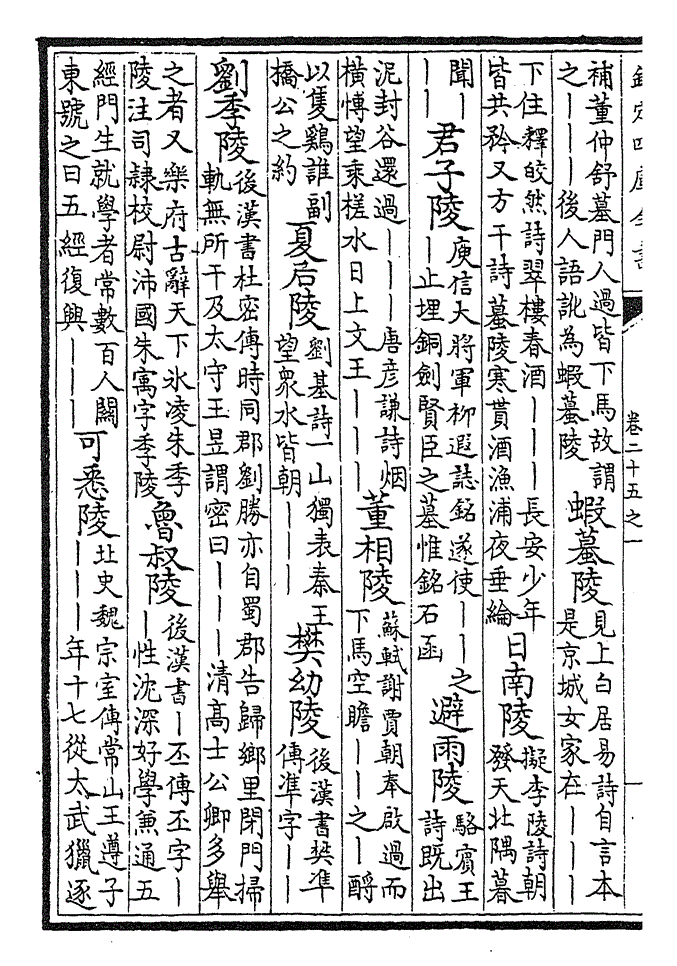 欽定四庫全書
卷二十五之一
補董仲舒墓門人過皆下馬故謂
之｜｜｜後人語訛為蝦蟇陵
蝦蟇陵
見上白居易詩自言本
是京城女家在｜｜｜
下住釋皎然詩翠樓春酒｜｜｜長安少年
皆共矜又方干詩蟇陵寒貰酒漁浦夜垂綸
日南陵
擬李陵詩朝
發天北隅暮
聞｜
｜｜
君子陵
庾信大將軍柳遐誌銘遂使｜｜之
｜止埋銅劍賢臣之墓惟銘石函
避雨陵
駱賓王
詩既出
泥封谷還過｜｜｜唐彥謙詩烟
橫博望乘槎水日上文王｜｜｜
董相陵
蘇軾謝賈朝奉啟過而
下馬空瞻｜｜之｜酹
以隻鷄誰副
橋公之約
夏后陵
劉基詩一山獨表秦王
望衆水皆朝｜｜｜
樊幼陵
後漢書樊準
傳準字｜｜
劉季陵
後漢書杜密傳時同郡劉勝亦自蜀郡告歸鄉里閉門掃
軌無所干及太守王昱謂密曰｜｜｜清髙士公卿多舉
之者又樂府古辭天下氷凌朱季
陵注司隷校尉沛國朱寓字季陵
魯叔陵
後漢書｜丕傳丕字｜
｜性沈深好學兼通五
經門生就學者常數百人闗
東號之曰五經復興｜｜｜
可悉陵
北史魏宗室傳常山王遵子
｜｜｜年十七從太武獵逐